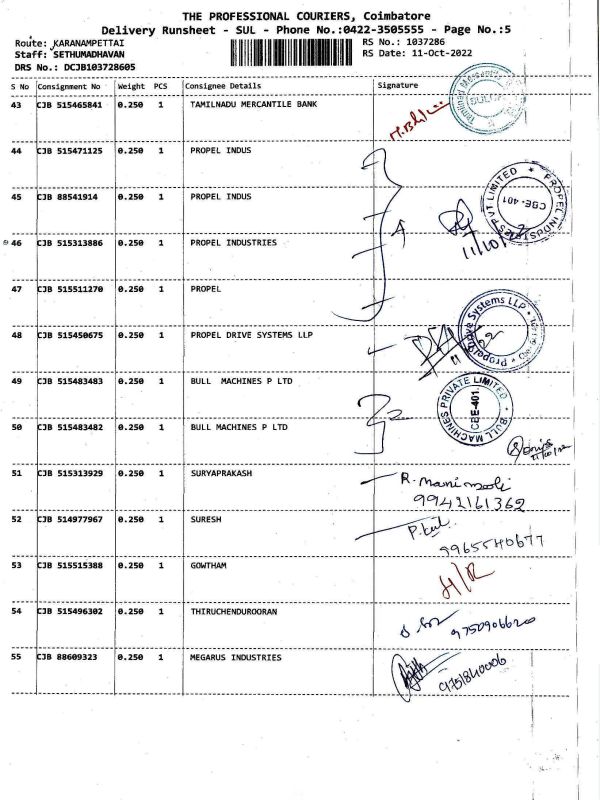 THE PROFESSIONAL COURIERS, Coimbatore
Delivery Runsheet - SUL - Phone No.:0422-3505555 - Page No.:5
Route: KARANAMPETTAI RS No.: 1037286
Staff: SETHUMADHAVAN RS Date: 11-Oct-2022
DRS No.: DCJB103728605
S No Consignment No Weight PCS Consignee Details Signature
43 CJB 515465841 0.250 1 TAMILNADU MERCANTILE BANK
44 CJB 515471125 0.250 1 PROPEL INDUS
45 CJB 88541914 0.250 1 PROPEL INDUS
4
PROPEL INDUSTRIES PVT LIMITED
CBE-401
11/10/22
46 CJB 515313886 0.250 1 PROPEL INDUSTRIES
47 CJB 515511270 0.250 1 PROPEL
48 CJB 515450675 0.250 1 PROPEL DRIVE SYSTEMS LLP
49 CJB 515483483 0.250 1 BULL MACHINES P LTD
2
BULL MACHINES PRIVATE LIMITED
CBE-401
50 CJB 515483482 0.250 1 BULL MACHINES P LTD
51 CJB 515313929 0.250 1 SURYAPRAKASH
9942161362
52 CJB 514977967 0.250 1 SURESH
9965540677
53 CJB 515515388 0.250 1 GOWTHAM H/R
54 CJB 515496302 0.250 1 THIRUCHENDUROORAN
9750906620
55 CJB 88609323 0.250 1 MEGARUS INDUSTRIES
9751840006